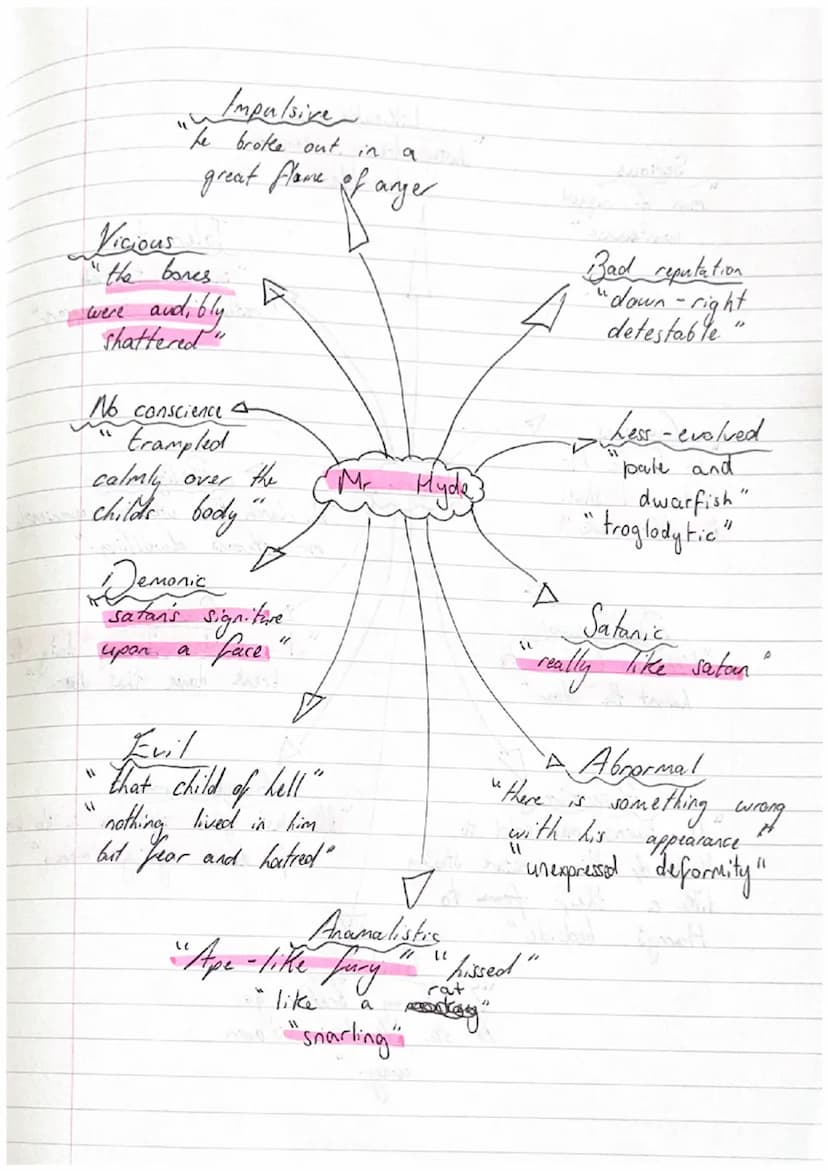 Impulsive
"he broke out in a
great flame of anger
Vicious
"the bones
were audibly
shattered"
Bad reputation
"down-right
detestable"
No conscience
"trampled
calmly over the
childs body"
Less-evolved
"pale and
dwarfish"
"troglodytic"
Mr Hyde
Demonic
"satan's signiture
upon a face"
Satanic
"really like satan"
Evil
"that child of hell"
"nothing lived in him
but fear and hatred"
Abnormal
"there is something wrong
with his appearance"
"unexpressed deformity"
Anamalistic
"Ape-like fury" "hissed"
"like a rat"
"snarling"